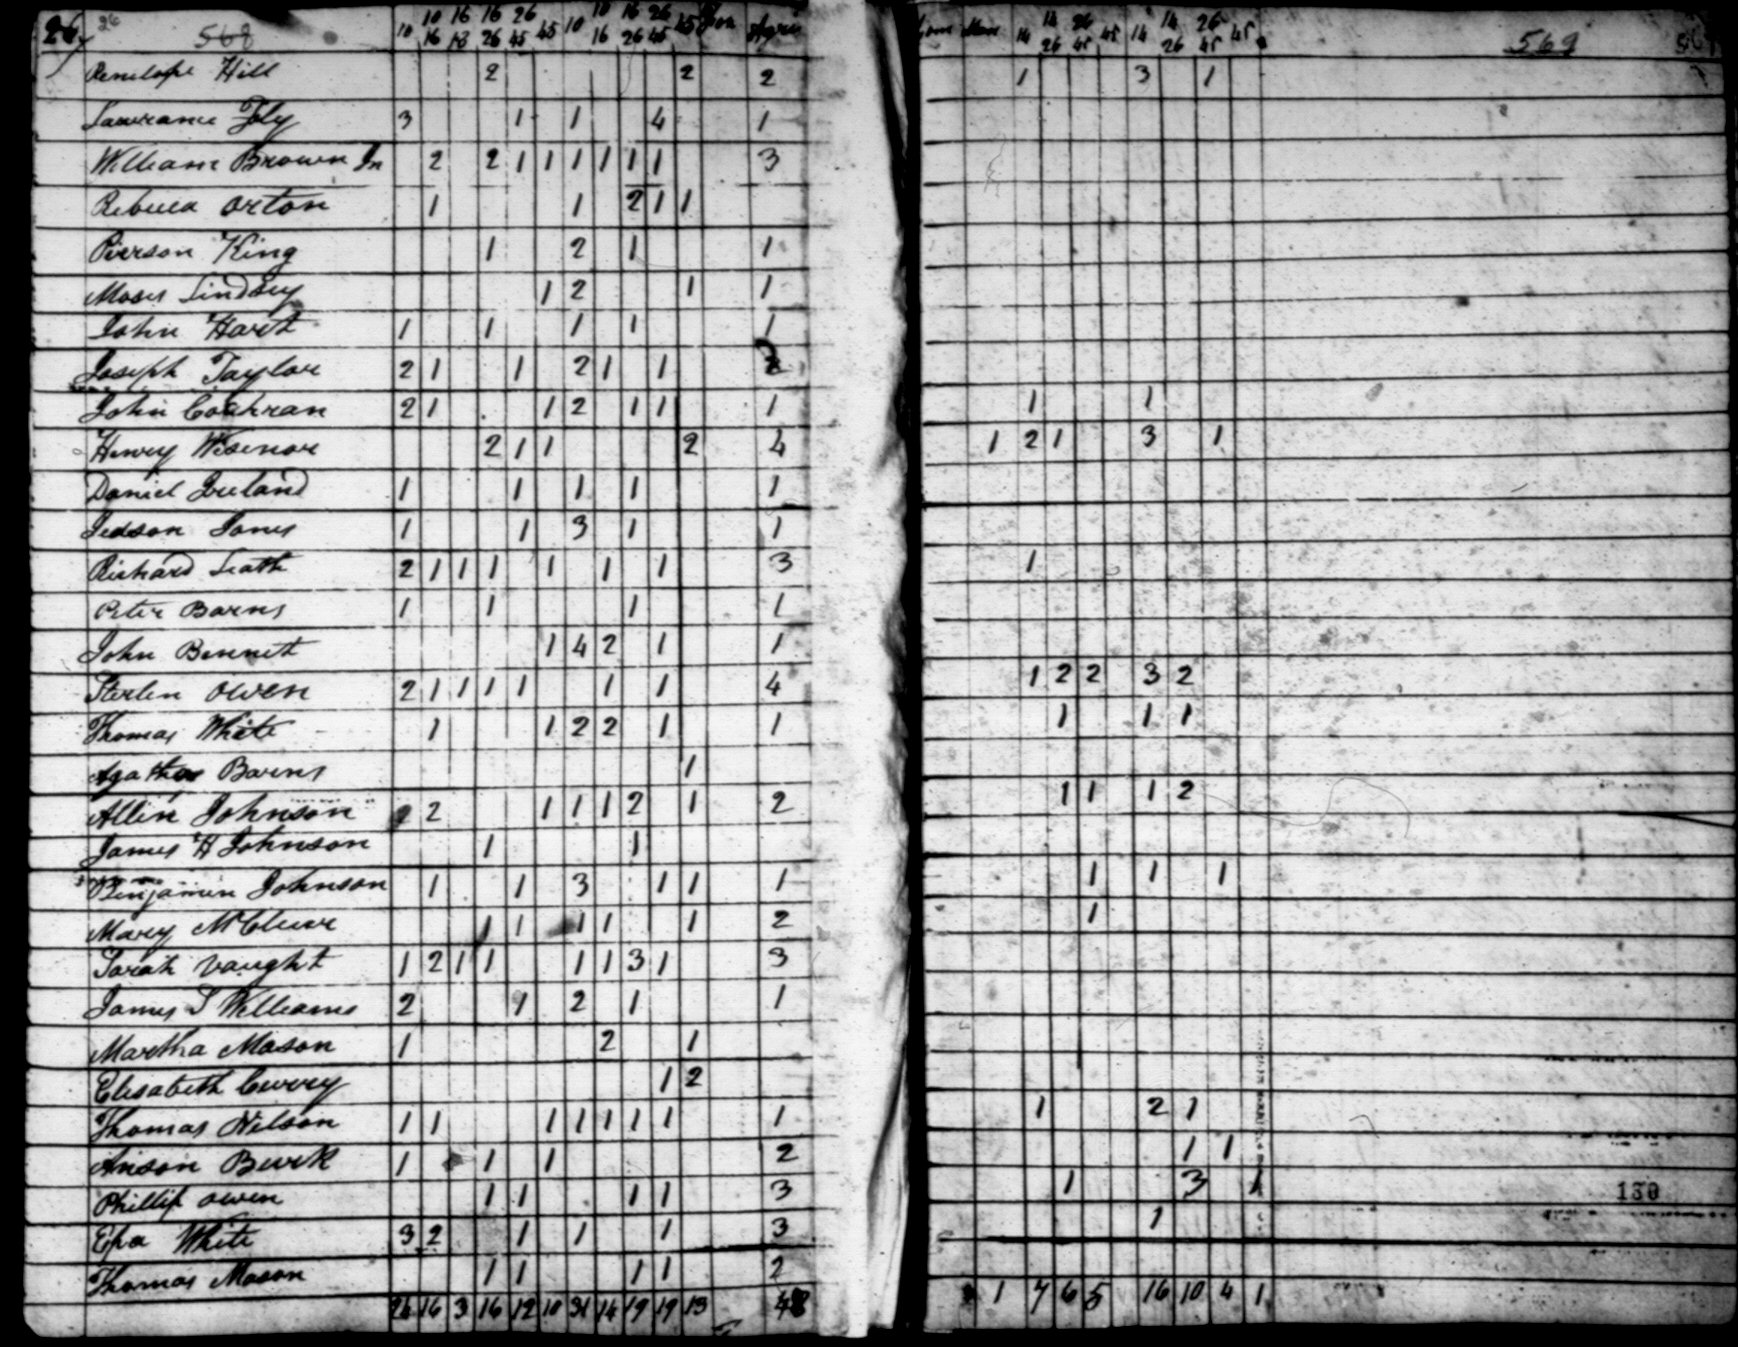 26 26 568 10 10 16 16 18 16 26 26 45 45 10 10 16 16 26 26 45 45 Agri 14 14 26 26 45 45 14 14 26 26 45 45 569
Penelope Hill 2 2 2 1 3 1
Lawrance Fly 3 1 1 4 1
William Brown Jn 2 2 1 1 1 1 1 1 3
Rebecca Orton 1 1 2 1 1
Pierson King 1 2 1 1
Moses Lindsey 1 2 1 1
John Hart 1 1 1 1 1
Joseph Taylor 2 1 1 2 1 1
John Cochran 2 1 1 2 1 1 1 1 1
Henry Wisenor 2 1 1 2 4 1 2 1 3 1
Daniel Ireland 1 1 1 1 1
Jedson Jones 1 1 3 1 1
Richard Leath 2 1 1 1 1 1 1 3 1
Peter Barns 1 1 1 1
John Bennet 1 4 2 1 1
Sterlin Owen 2 1 1 1 1 1 1 4 1 2 2 3 2
Thomas White 1 1 2 2 1 1 1 1 1
Agatha Barns 1
Allin Johnson 2 2 1 1 1 2 1 2 1 1 1 2
James H Johnson 1 1
Benjamin Johnson 1 1 3 1 1 1 1 1 1
Mary McCluer 1 1 1 1 1 2 1
Sarah Vaught 1 2 1 1 1 1 3 1 3
James S Williams 2 1 2 1 1
Martha Mason 1 2 1
Elisabeth Currey 1 2
Thomas Nelson 1 1 1 1 1 1 1 1 1 2 1
Anson Burk 1 1 1 2 1 1
Phillip Owen 1 1 1 1 3 1 3 1
130
Epa White 3 2 1 1 1 3 1
Thomas Mason 1 1 1 1 2
26 16 3 16 12 10 31 14 19 19 13 48 1 7 6 5 16 10 4 1